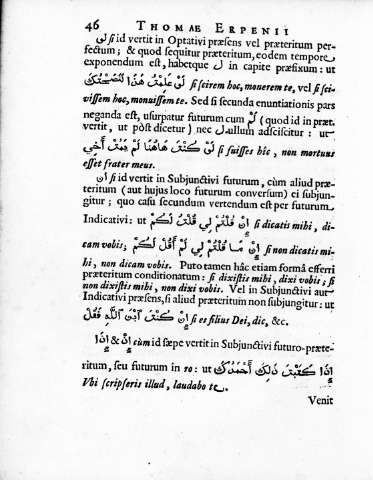 46 THOMAE ERPENII
لَو si id vertit in Optativi præsens vel præteritum per-
fectum; & quod sequitur præteritum, eodem tempore
exponendum est, habetque لَ in capite præfixum: ut
لَوْ عَلِمْتُ هٰذَا لَنَصَحْتُكَ si scirem hoc, monuerem te, vel si sci-
vissem hoc, monuissem te. Sed si secunda enuntiationis pars
neganda est, usurpatur futurum cum لَمْ (quod id in præt.
vertit, ut pòst dicetur) nec لَ ullum adsciscitur: ut
لَوْ كُنْتَ هَاهُنَا لَمْ يَمُتْ أَخِي si fuisses hîc, non mortuus
esset frater meus.
إِن si id vertit in Subjunctivi futurum, cùm aliud præ-
teritum (aut hujus loco futurum conversum) ei subjun-
gitur; quo casu secundum vertendum est per futurum
Indicativi: ut إِن قُلْتُمْ لِي قُلْتُ لَكُمْ si dicatis mihi, di-
cam vobis; إِن مَا قُلْتُمْ لِي لَمْ أَقُلْ لَكُمْ si non dicatis mi-
hi, non dicam vobis. Puto tamen hâc etiam formâ efferri
præteritum conditionatum: si dixistis mihi, dixi vobis; si
non dixistis mihi, non dixi vobis. Vel in Subjunctivi aut
Indicativi præsens, si aliud præteritum non subjungitur: ut
إِن كُنْتَ ٱبْنَ ٱللّٰهِ فَقُلْ si es filius Dei, dic, &c.
إِذْ & إِذَا cùm id sæpe vertit in Subjunctivi futuro-præte-
ritum, seu futurum in ro: ut إِذَا كَتَبْتَ ذٰلِكَ أَحْمَدُكَ
Vbi scripseris illud, laudabo te.
Venit